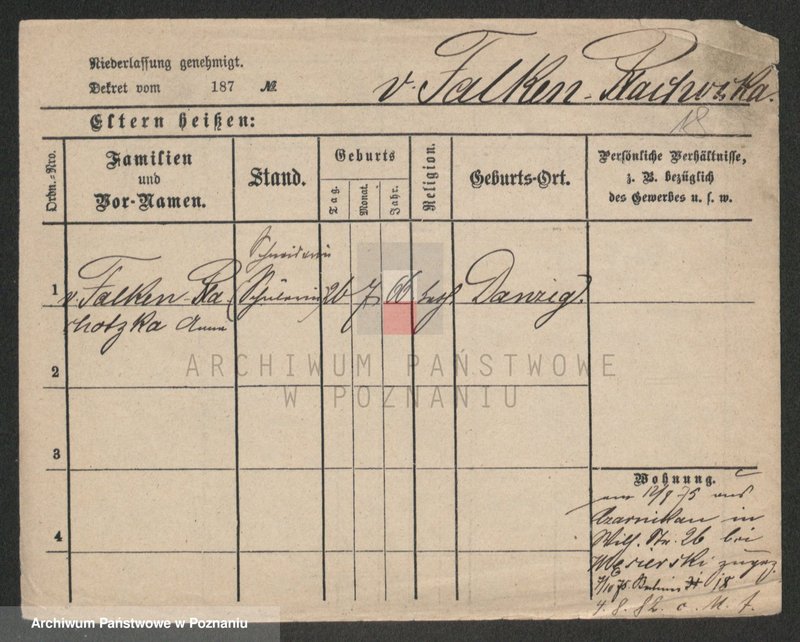 Niederlassung genehmigt.
Dekret vom 187 №
v. Falken-Plachotzka.
18
Eltern heißen:
Ordn.-Nro.
Familien
und
Vor-Namen.
Stand.
Geburts
Tag.
Monat.
Jahr.
Religion.
Geburts-Ort.
Persönliche Verhältnisse,
z. B. bezüglich
des Gewerbes u. s. w.
1
v. Falken-Pla
chotzka Anna
Schneiderin
Schülerin
26
7
66
kath.
Danzig.
ARCHIWUM PAŃSTWOWE
W POZNANIU
2
3
4
Wohnung.
am 12/8 75 aus
Czarnikau in
Wilh. Str. 26 bei
Mesierski zugez.
7/10 75
18
4. 8. 82. a. M. 7.
Archiwum Państwowe w Poznaniu